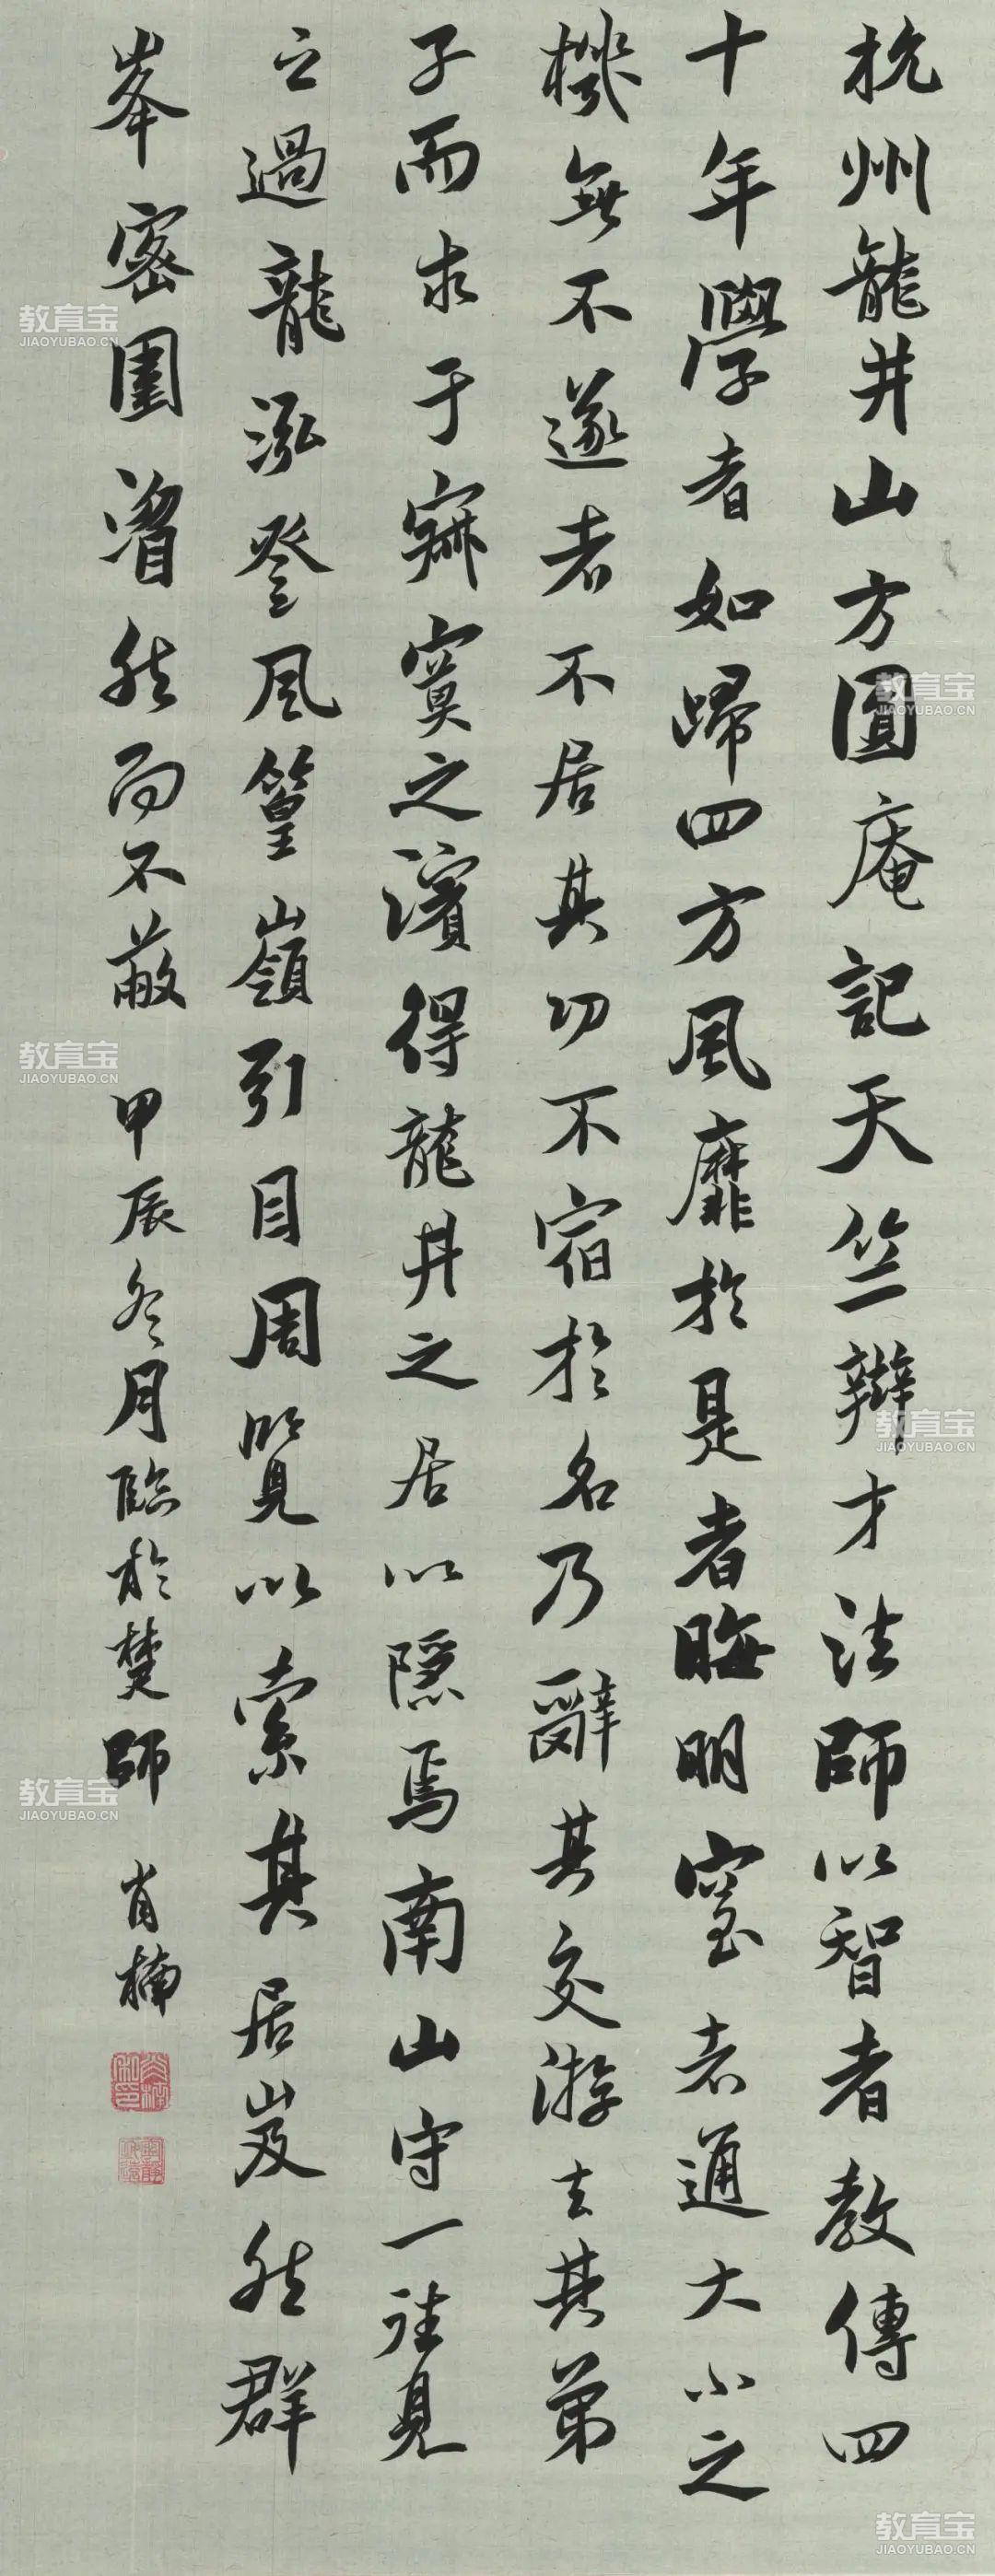 杭州龍井山方圓庵記天竺辯才法師以智者教傳四
十年學者如歸四方風靡於是者晦明窒者通大小之
機無不遂者不居其功不宿於名乃辭其交游去其弟
子而求于寂寞之濱得龍井之居以隱焉南山守一往見
之過龍泓登風篁嶺引目周覽以索其居岌然群
峯密圍溍然而不蔽 甲辰冬月臨於楚師 肖楠
教育宝
JIAOYUBAO.CN
教育宝
JIAOYUBAO.CN
教育宝
JIAOYUBAO.CN
教育宝
JIAOYUBAO.CN
教育宝
JIAOYUBAO.CN
教育宝
JIAOYUBAO.CN